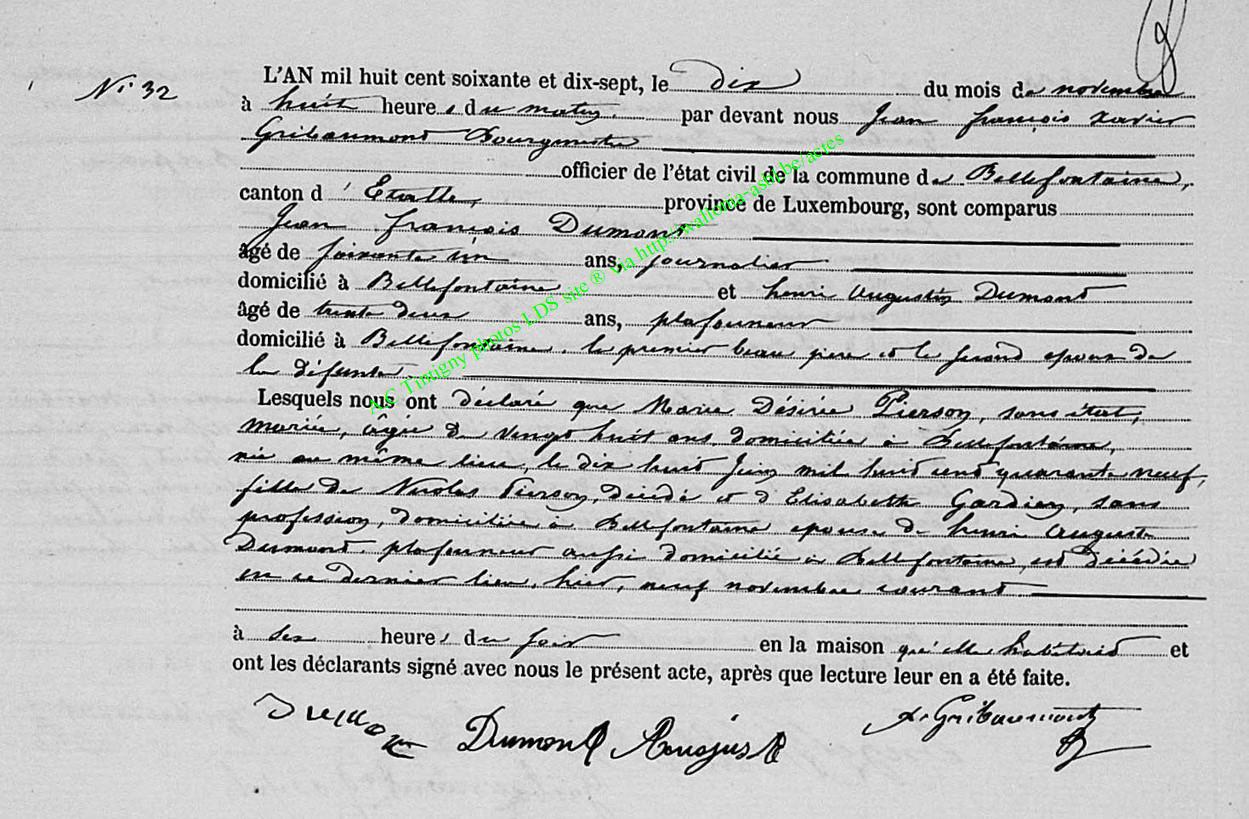 N° 32
L'AN mil huit cent soixante et dix-sept, le dix du mois de novembre
à huit heures du matin, par devant nous Jean François Xavier
Gribaumont Bourgmestre
officier de l'état civil de la commune de Bellefontaine,
canton d'Etalle, province de Luxembourg, sont comparus
Jean François Dumont
âgé de soixante un ans, journalier
domicilié à Bellefontaine et henri Augustin Dumont
âgé de trente deux ans, plafonneur
domicilié à Bellefontaine, le premier beau père et le second epoux de
la défunte.
Lesquels nous ont déclaré que Marie Désirée Pierson, sans état,
mariée, âgée de vingt huit ans, domiciliée à Bellefontaine,
née au même lieu, le dix huit Juin mil huit cent quarante neuf,
fille de Nicolas Pierson, décédé et d'Elisabeth Gardien, sans
profession, domiciliée à Bellefontaine epouse de henri Auguste
Dumont, plafonneur aussi domiciliée à Bellefontaine, est décédée
en ce dernier lieu, hier, neuf novembre courant
à heures du soir en la maison qu'elle habitait et
ont les déclarants signé avec nous le présent acte, après que lecture leur en a été faite.
Dumont Dumont X. Gribaumont
AC Tintigny photos LDS site ® via http://wallonia-asbl.be/actes